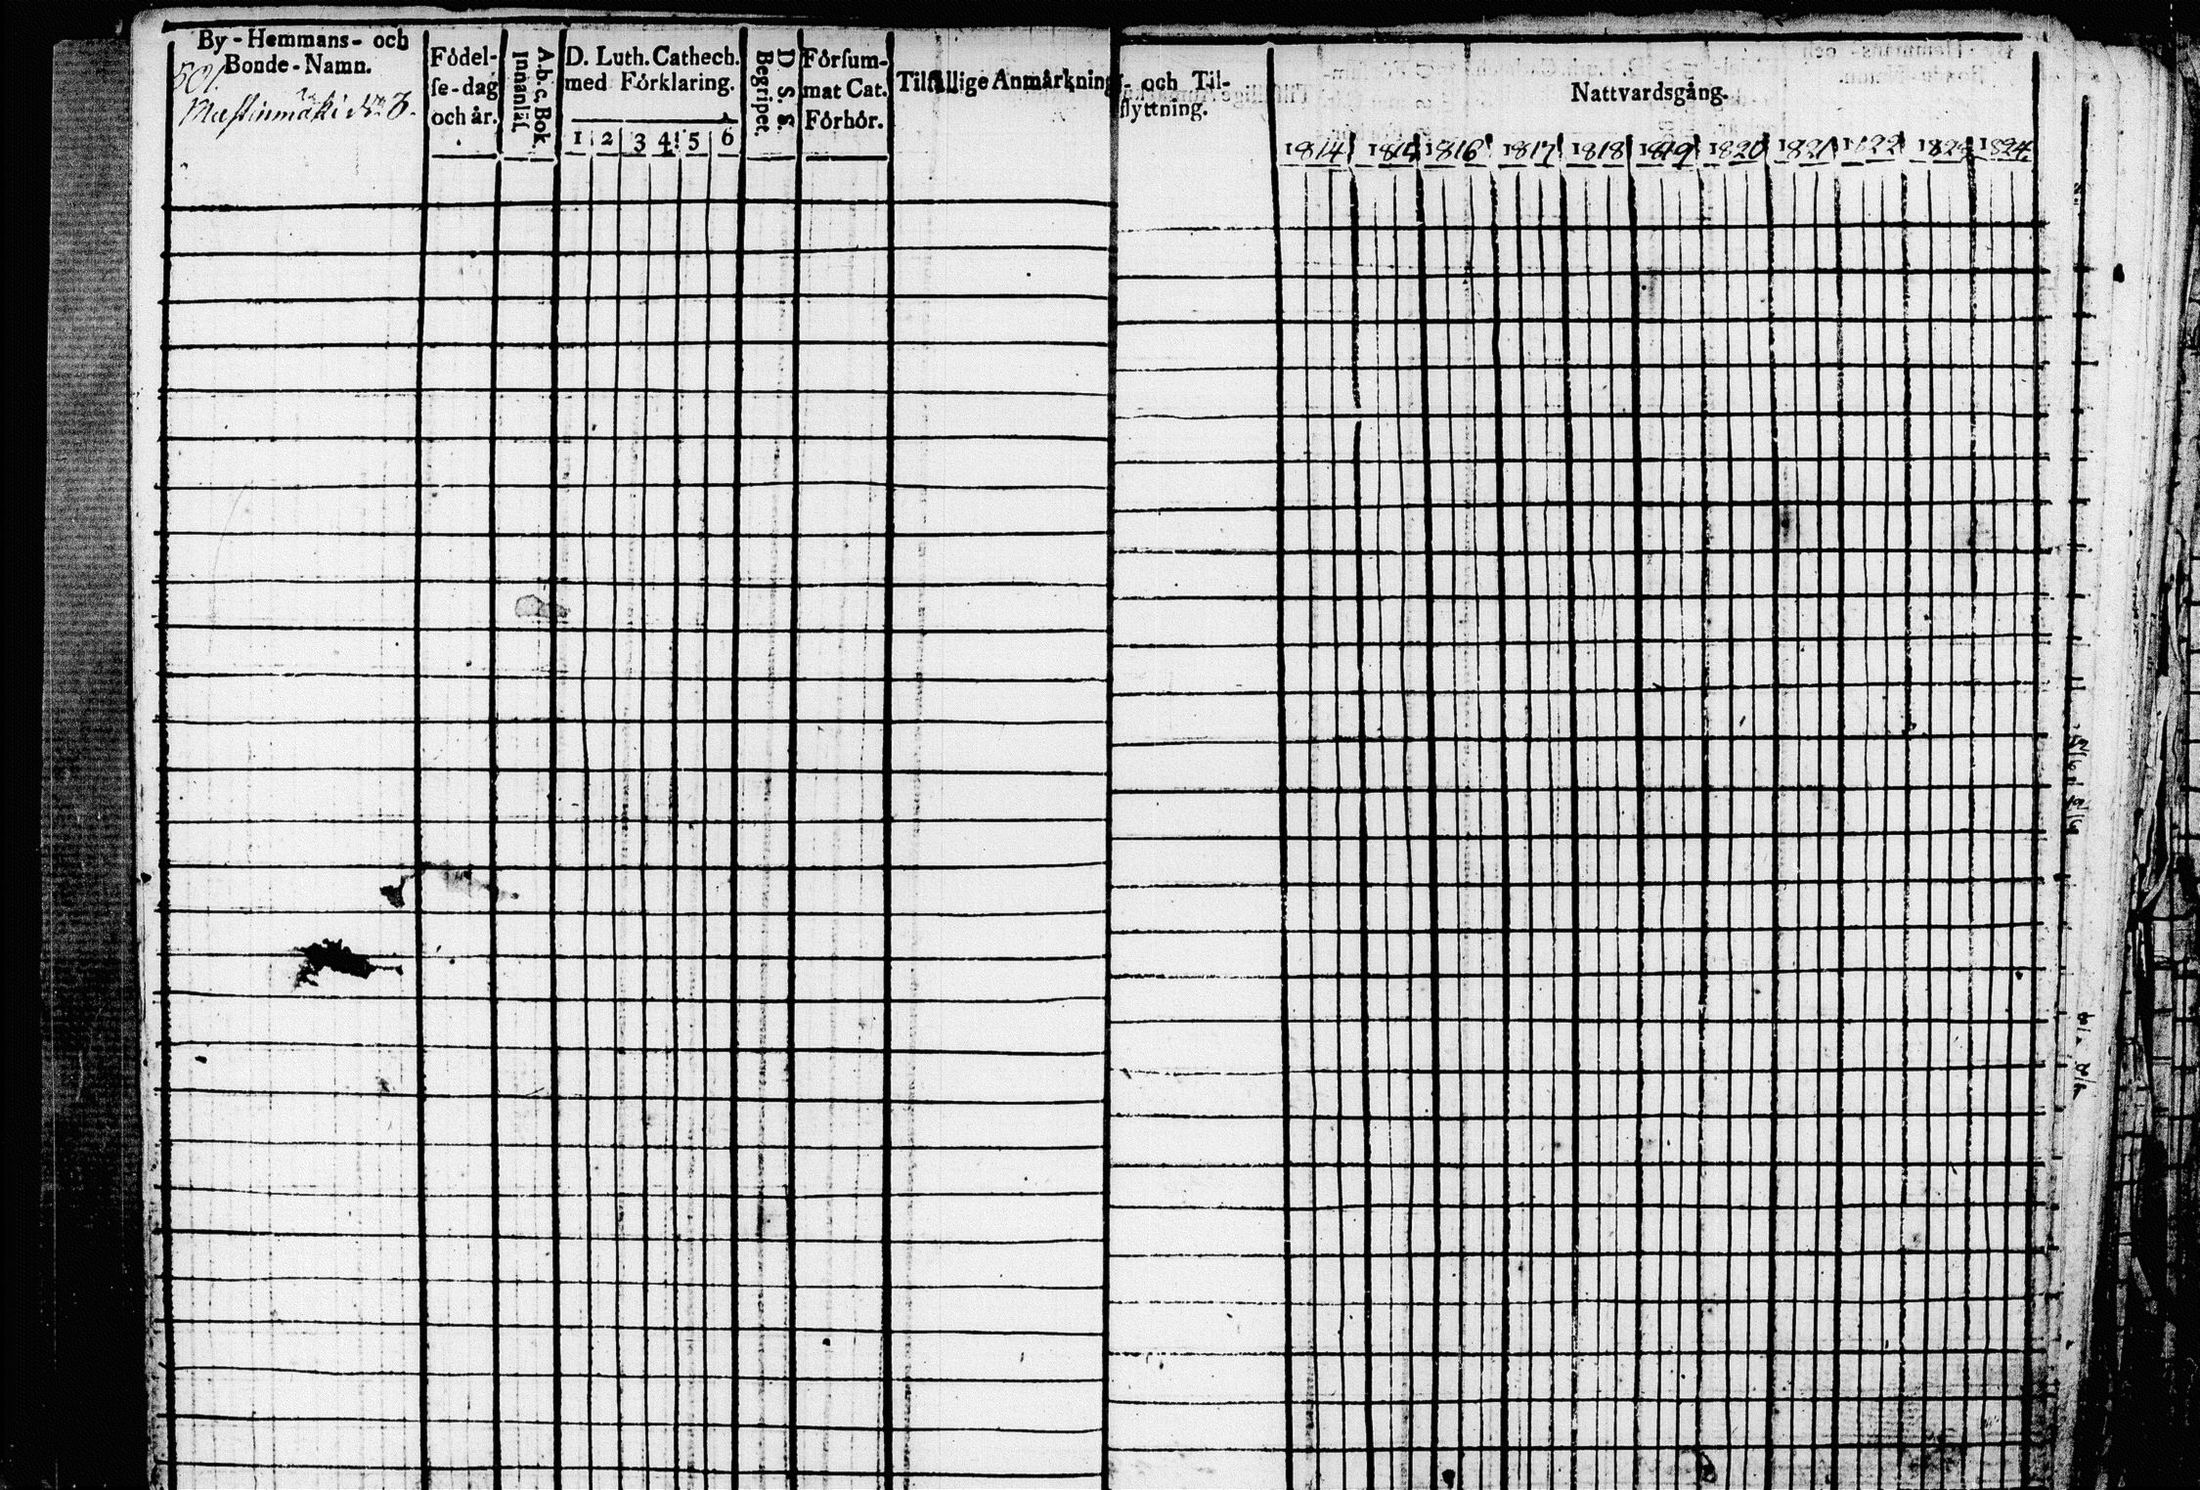 By-Hemmans- och
Bonde-Namn.
501.
Mustinmäki No 7.
Födel-
se-dag
och år.
A.b.c. Bok.
Innanläs.
D. Luth. Cathech.
med Förklaring.
1 2 3 4 5 6
D. S. S.
Begripet.
Försum-
mat Cat.
Förhör.
Tilfällige Anmärkning
- och Til-
flyttning.
Nattvardsgång.
1814 1815 1816 1817 1818 1819 1820 1821 1822 1823 1824